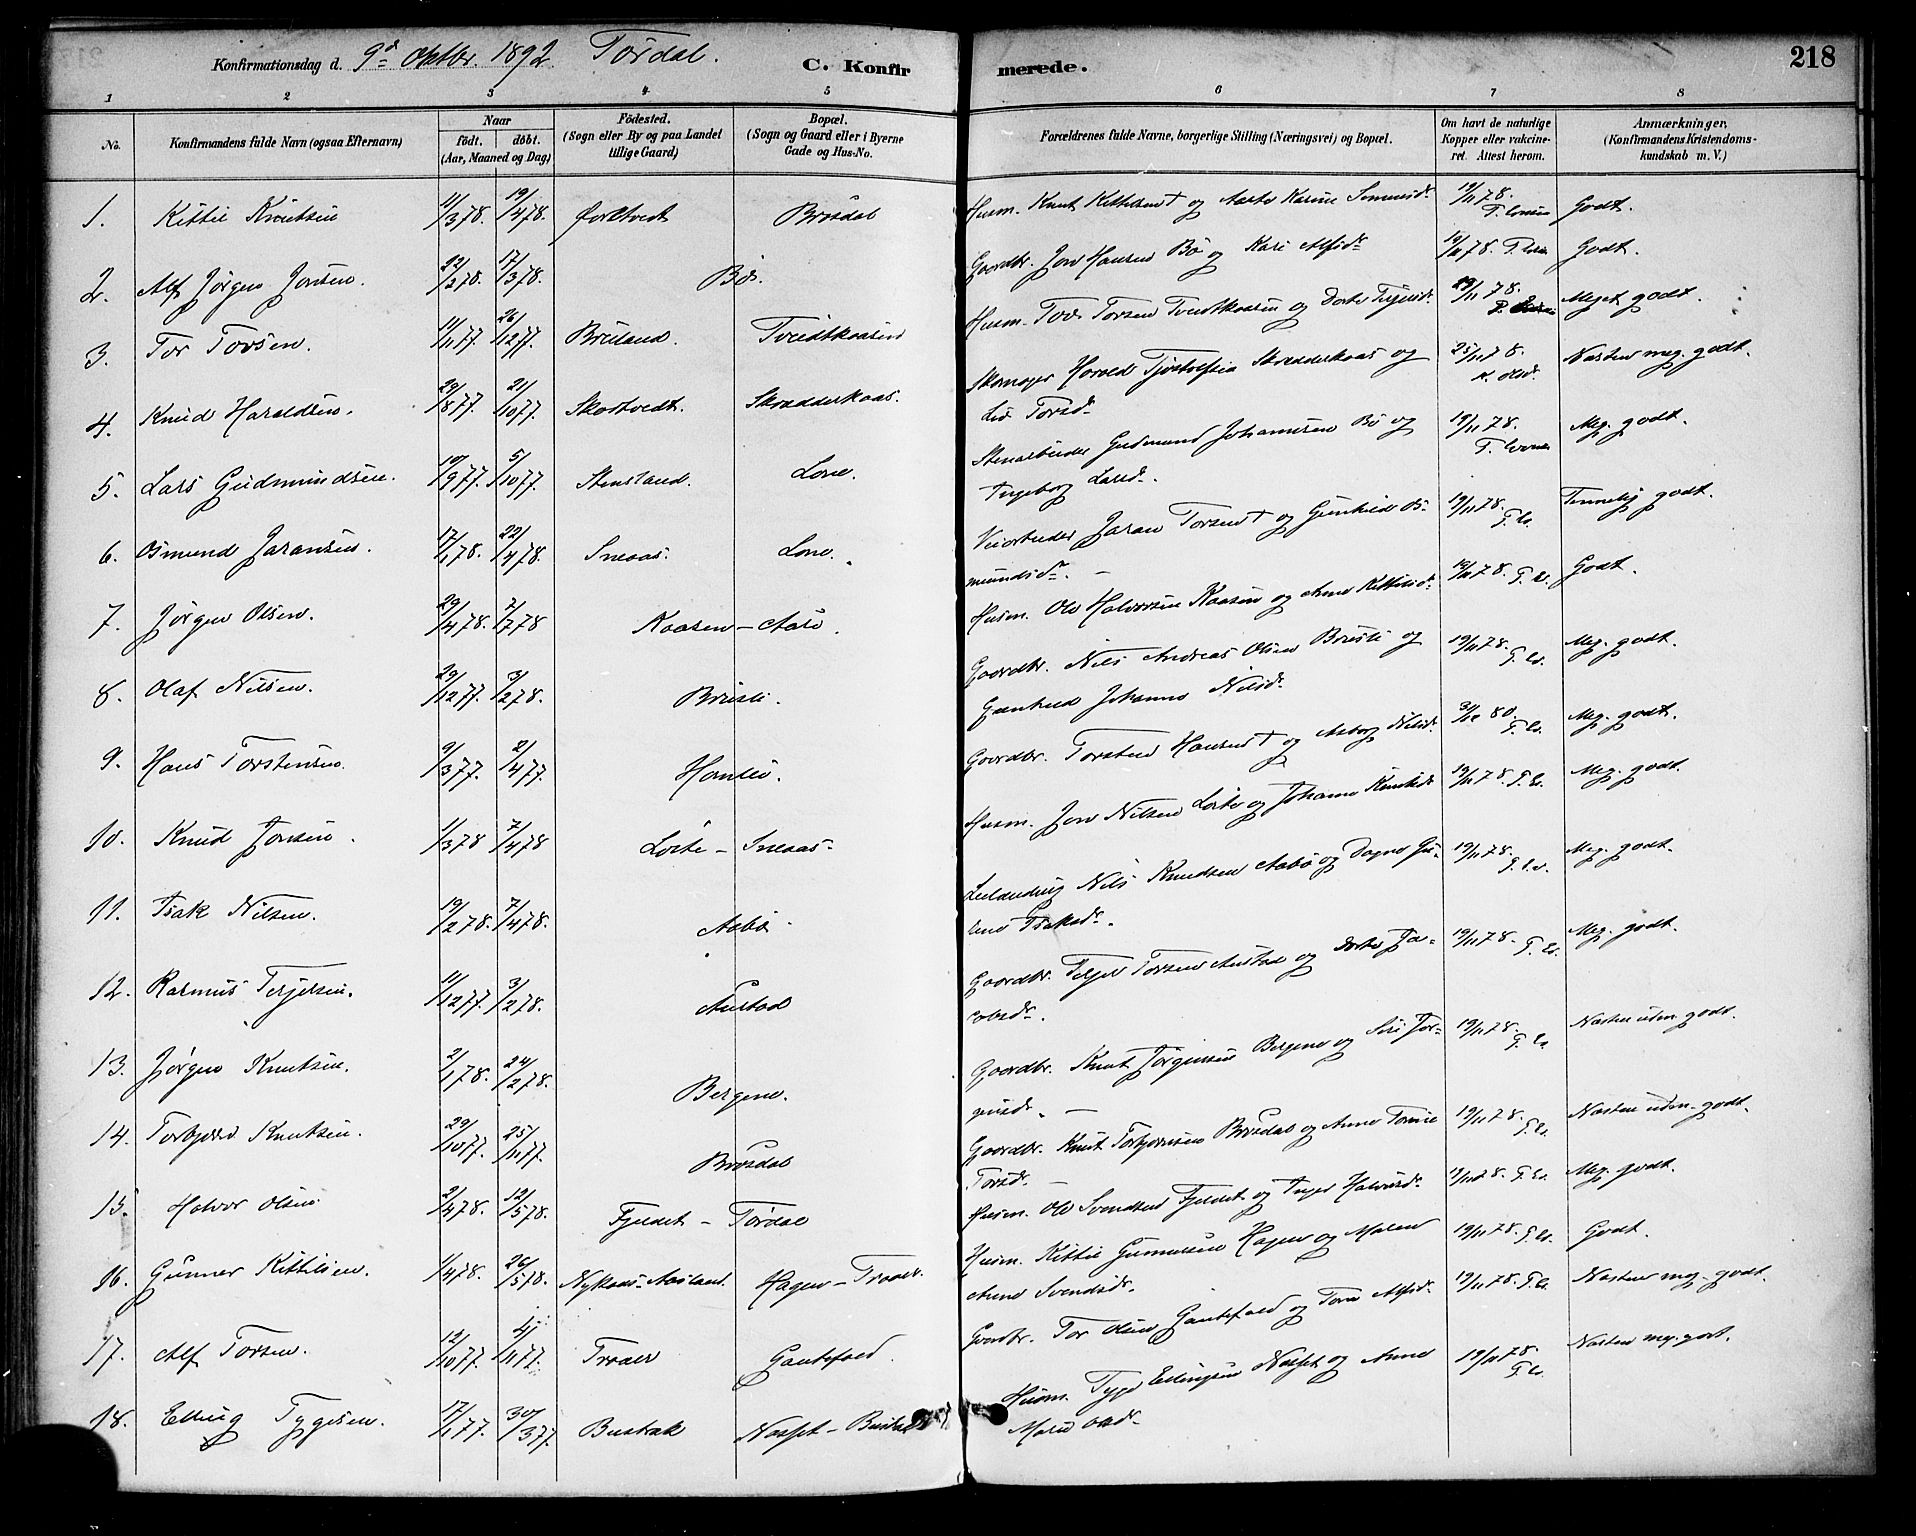 Konfirmationsdag d. 9d Oktbr. 1892 Tørdal. C. Konfirmerede. 218
1 2 3 4 5 6 7 8
No. Konfirmandens fulde Navn (ogsaa Efternavn) Naar født. døbt. (Aar, Maaned og Dag) Fødested. (Sogn eller By og paa Landet tillige Gaard) Bopæl. (Sogn og Gaard eller i Byerne Gade og Hus-No. Forældrenes fulde Navne, borgerlige Stilling (Næringsvei) og Bopæl. Om havt de naturlige Kopper eller vakcineret. Attest herom. Anmærkninger, (Konfirmandens Kristendomskundskab m. V.)
1. Kittil Knutsen 11/3 78. 19/4 78. Brødsdal Husm. Knut Kittilsen † og Aaste Karine 19/11 78. Godt.
2. Alf Jørgen Jonsen. 22/2 78. 17/3 78. Bø. Gaardbr. Jon Hansen Bø og Kari Alfsdr 19/11 78. Godt.
3. Tor Torsen. 11/11 77. 26/12 77. Breiland. Tveidtkaasen Husm. Tov Torsen Tveidtkaasen og Dorte 29/11 78. Meget godt.
4. Knud Haraldsen. 29/8 77. 21/10 77. Skostvedt. Skrædderkaas. Skomager Harald Tjostolfsen Skrædderkaas og Liv Torsdr 25/11 78. Næsten meg. godt.
5. Lars Gudmundsen. 10/9 77. 5/10 77. Stensland. Lone. Stenarbeider Gudmund Johannesen Bø og Ingeborg Larsd. 19/11 78. Meg. godt.
6. Osmund Jaransen. 17/1 78. 22/4 78. Sneaas. Lone. Veiarbeider Jaran Torsen † og Gunhild Osmundsdr. 19/11 78. Temmelig godt.
7. Jørgen Olsen. 29/4 78. 7/7 78 Kaasen – Husm. Ole Halvorsen Kaasen og Anne Kittilsdr 19/11 78. Godt.
8. Olaf Nilsen. 29/12 77. 3/2 78. Breili. Gaardbr. Nils Andreas Olsen Breili og Gunhild Johanne Nilsdr 19/11 78. Meg. godt.
9. Hans Torstensen. 9/3 77. 2/4 77. Gaardbr. Torsten Hansen † og Aaborg Nilsdr 3/12 80. Meg. godt.
10. Knud Jonsen. 1/3 78 7/4 78 Løite – Sneaas. Husm. Jon Nilsen Løite og Johanne Knutsdr 19/11 78. Meg. godt.
11. Isak Nilsen. 19/2 78. 7/4 78. Aabø. Leilænding Nils Knudsen Aabø og Dagne Gulene Isaksdr. 19/11 78. Meg. godt.
12. Rasmus Terjesen. 11/12 77. 3/2 78. Austad Gaardbr. Terje Torsen Austad og Dorte Jacobsdr. 19/11 78. Meg. godt.
13. Jørgen Knutsen. 2/1 78. 24/2 78. Bergene. Gaardbr. Knut Jørgensen Bergene og Siri Jørgensdr. – 19/11 78. Næsten uden. godt.
14. Torbjørn Knutsen. 29/10 77. 25/11 77. Brødsdal Gaardbr. Knut Torbjørnsen Brødsdal og Anne Tomine Torsdr. – 19/11 78. Næsten uden. godt.
15. Halvor Olsen 2/4 78. 12/5 78. Fjeldet – Tørdal Husm. Ole Svendsen Fjeldet og Inger Halvorsdr. 19/11 78. Meg. godt.
16. Gunnar Kittilsen. 1/4 78. 26/5 78. Hagen – Traaer. Husm. Kittil Gunnarsen Hagen og Maren Anne Svendsdr. 19/11 78. Godt.
17. Alf Torsen. 12/10 77. 4/11 77. Traaer Gautefald. Gaardbr. Tor Olsen Gautefald og Tone Alfsdr. 19/11 78. Næsten meg. godt.
18. Elling Tygesen. 17/1 77. 30/3 77. Bustrak Husm. Tyge Ellingsen Næset og Anne Marie Olsdr. 19/11 78. Næsten meg. godt.